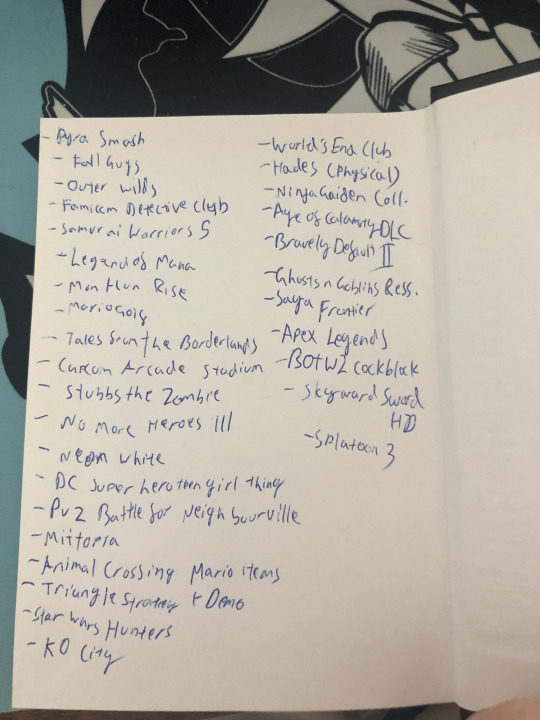 - Pyra Smash
- Fall Guys
- Outer Wilds
- Famicom Detective Club
- Samurai Warriors 5
- Legend of Mana
- Mon Hun Rise
- Mario Golf
- Tales from the Borderlands
- Capcom Arcade Stadium
- Stubbs the Zombie
- No More Heroes III
- Neon White
- DC super hero teen girl thing
- PvZ Battle for Neighbourville
- Miitopia
- Animal Crossing Mario items
- Triangle Strategy + Demo
- Star Wars Hunters
- KO City
- World's End Club
- Hades (Physical)
- Ninja Gaiden Coll.
- Age of Calamity DLC
- Bravely Default II
- Ghosts n Goblins Ress.
- Saga Frontier
- Apex Legends
- BOTW2 cockblock
- Skyward Sword
HD
- Splatoon 3